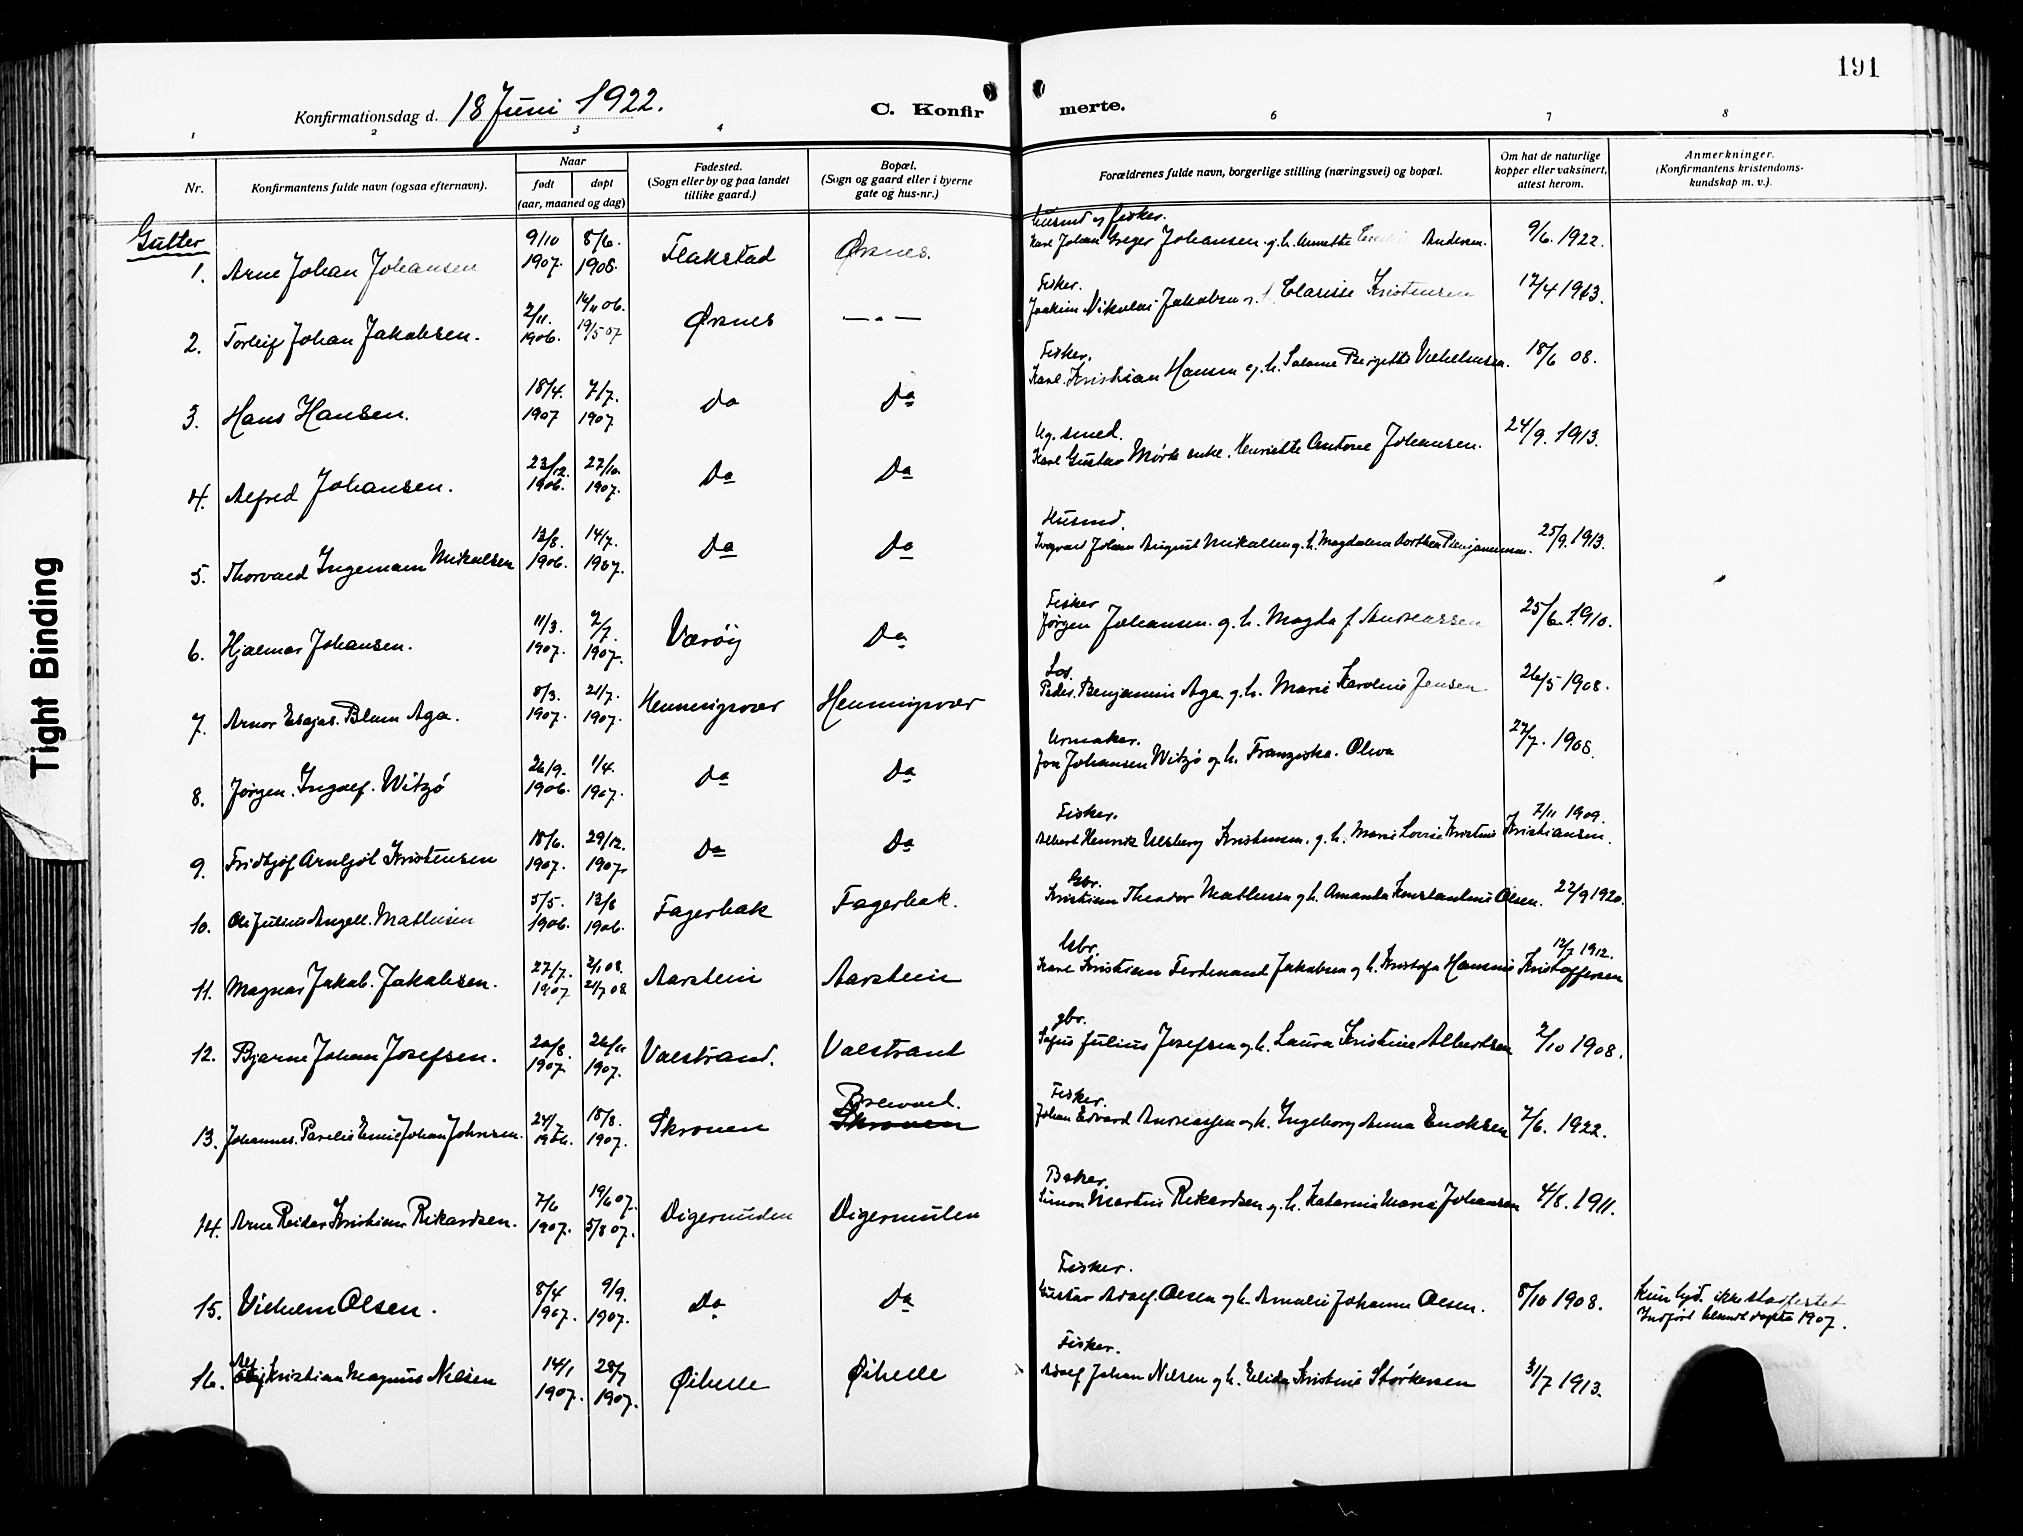 191
Konfirmationsdag d. 18 Juni 1922.
C. Konfirmerte.
1 2 3 4 6 7 8
Nr.
Konfirmantens fulde navn (ogsaa efternavn).
Naar
født døpt
(aar, maaned og dag)
Fødested.
(Sogn eller by og paa landet
tillike gaard.)
Bopæl.
(Sogn og gaard eller i byerne
gate og hus-nr.)
Forældrenes fulde navn, borgerlige stilling (næringsvei) og bopæl.
Om hat de naturlige
kopper eller vaksinert,
attest herom.
Anmerkninger.
(Konfirmantens kristendoms-
kundskap m. v.).
Gutter
Husmd og fisker.
1. Arne Johan Johansen 9/10 1907. 8/6. 1908. Flakstad Øksnes. Karl Johan Greger Johansen. g. h. Annette Andersen. 9/6. 1922.
Fisker.
2. Torleif Johan Jakobsen. 2/11. 1906. 14/11 06. 19/5 07 Øksnes — " — Joakim Nikolai Jakobsen Clarisse Kristensen 12/4 1913.
Fisker.
3. Hans Hansen. 18/4. 1907 7/7. 1907 Do Do Karl Kristian Hansen og h. Salome Bergette Vilhelmsen. 18/6 08.
Ug. smed.
4. Alfred Johansen. 23/12. 1906. 27/10. 1907. Do Do Karl Gustav Mørk enke. Henriette Antone Johansen. 24/9. 1913.
Husmd.
5. Thorvald Ingemann Mikalsen 13/8. 1906. 14/7. 1907. Do Do Ingvald Johan August Mikalsen g. h. Magdalena Dorthea Benjaminsen. 25/9. 1913.
Fisker
6. Hjalmar Johansen. 11/3. 1907. 7/7. 1907. Værøy Do Jørgen Johansen. g. h. Magda f. Andreassen 25/6. 1910.
Los.
7. Arnor Esajas. Blum Aga. 8/3. 1907. 21/7. 1907. Henningsvær Henningsvær Peder Benjamin Aga g. h. Marie Karoline Jensen 26/5 1908.
Urmaker.
8. Jørgen. Ingolf. Witzø 26/9. 1906. 1/4. 1907. Do Do Jon Johansen Witzø og h. Franziska. Oliva 27/7. 1908.
Fisker. 2/11 1909.
9. Fridtjof Arnljot Kristensen 18/6. 1907. 29/12. 1907. Do Do Albert Henrik Ulsberg Kristensen. g. h. Marie Lovise Kristine Kristiansen.
Gbr.
10. Ole Julius Angell. Mathisen 5/5. 1906. 13/8 1906. Fagerbak Fagerbak. Kristian Theodor Mathisen og h. Amanda Konstantine Olsen. 22/9 1920.
Gbr. 12/7 1912.
11. Magnar Jakob. Jakobsen. 27/7. 1907 2/1 08. 21/7 08 Aarstein Aarstein Karl Kristian Ferdinand Jakobsen og h. Kristofa Hansine Kristoffersen
gbr.
12. Bjarne Johan Josefsen. 20/8. 1907. 26/11 1907. Valstrand. Valstrand Sofus Julius Josefsen og h. Laura Kristine Albertsen 2/10 1908.
Fisker. Brevand.
13. Johannes. Parelis Emil Johan Johnsen. 24/7 1906. 18/8. 1907. Skroven Skroven Johan Edvard Andreassen og h. Ingeborg Anna Enoksen 7/6. 1922.
Baker.
14. Arne Reidar Kristian Rikardsen. 7/6 1907. 19/6 07. 5/8 07. Digermulen Digermulen Simon Martin Rikardsen og h. Katarina Maria Johansen 4/8. 1911.
Fisker.
15. Vilhelm Olsen. 8/4 1907. 9/9. 1907. Do Do Gustav Adolf. Olsen og h. Amalie Johanne Olsen. 8/10 1908. Kun hjd. ikke stadfestet
Indført blandt døpte 1907.
Fisker.
16. Alf Kristian Magnus Nilsen 14/1 1907. 28/7 1907. Øihelle Øihelle Adolf Johan Nilsen og h. Elida Kristine Størkersen 31/7 1913.
Tight Binding